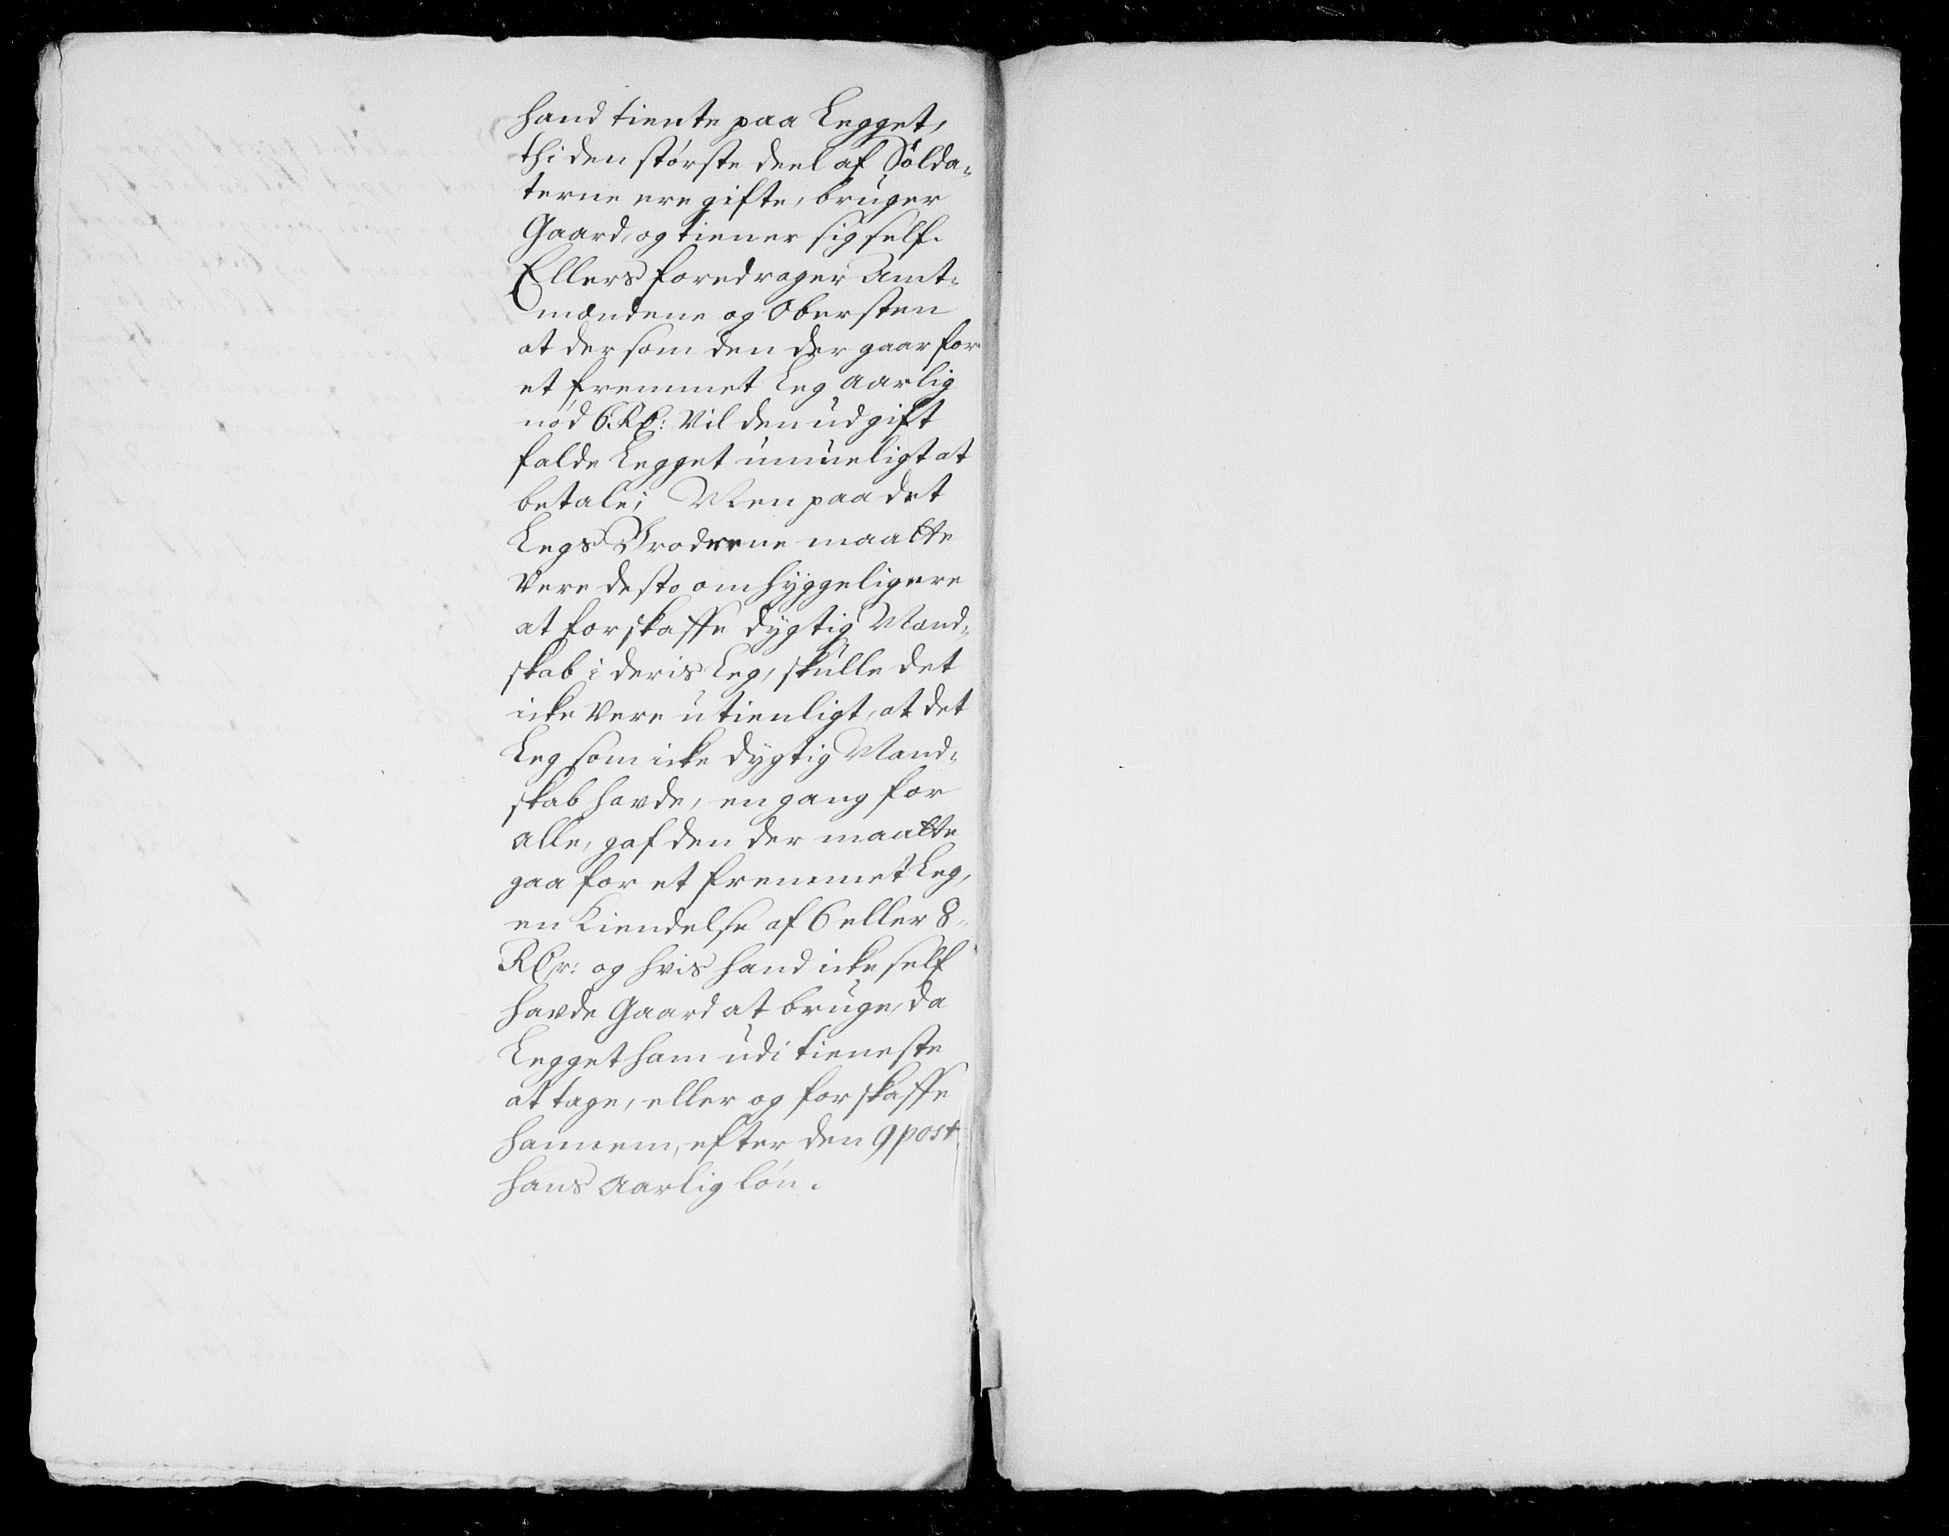 hand tiente paa Legget,
thi den største deel af Solda-
terne ere gifte, bruger
Gaard, og tiener sig self.
Ellers foredrager Amt-
mændene og Obersten
at dersom den der gaar for
et fremmet Leg aarlig
nød 6 Rd: vil den udgift
falde Legget umueligt at
betale; Men paa det
Legs Brødrene maatte
Vere desto omhyggeligere
at forskaffe dygtig Mand-
skab i deris Leg, skulle det
icke vere utienligt, at det
Leg som icke dygtig Mand-
skab havde, en gang for
alle, gaf den der maatte
gaa for et fremmet Leg,
en Kiendelse af 6 eller 8
Rdr: og hvis hand icke self
havde Gaard at bruge, da
Legget ham udi tieneste
at tage, eller og forskaffe
hannem, efter den 9 post
hans aarlig løn.